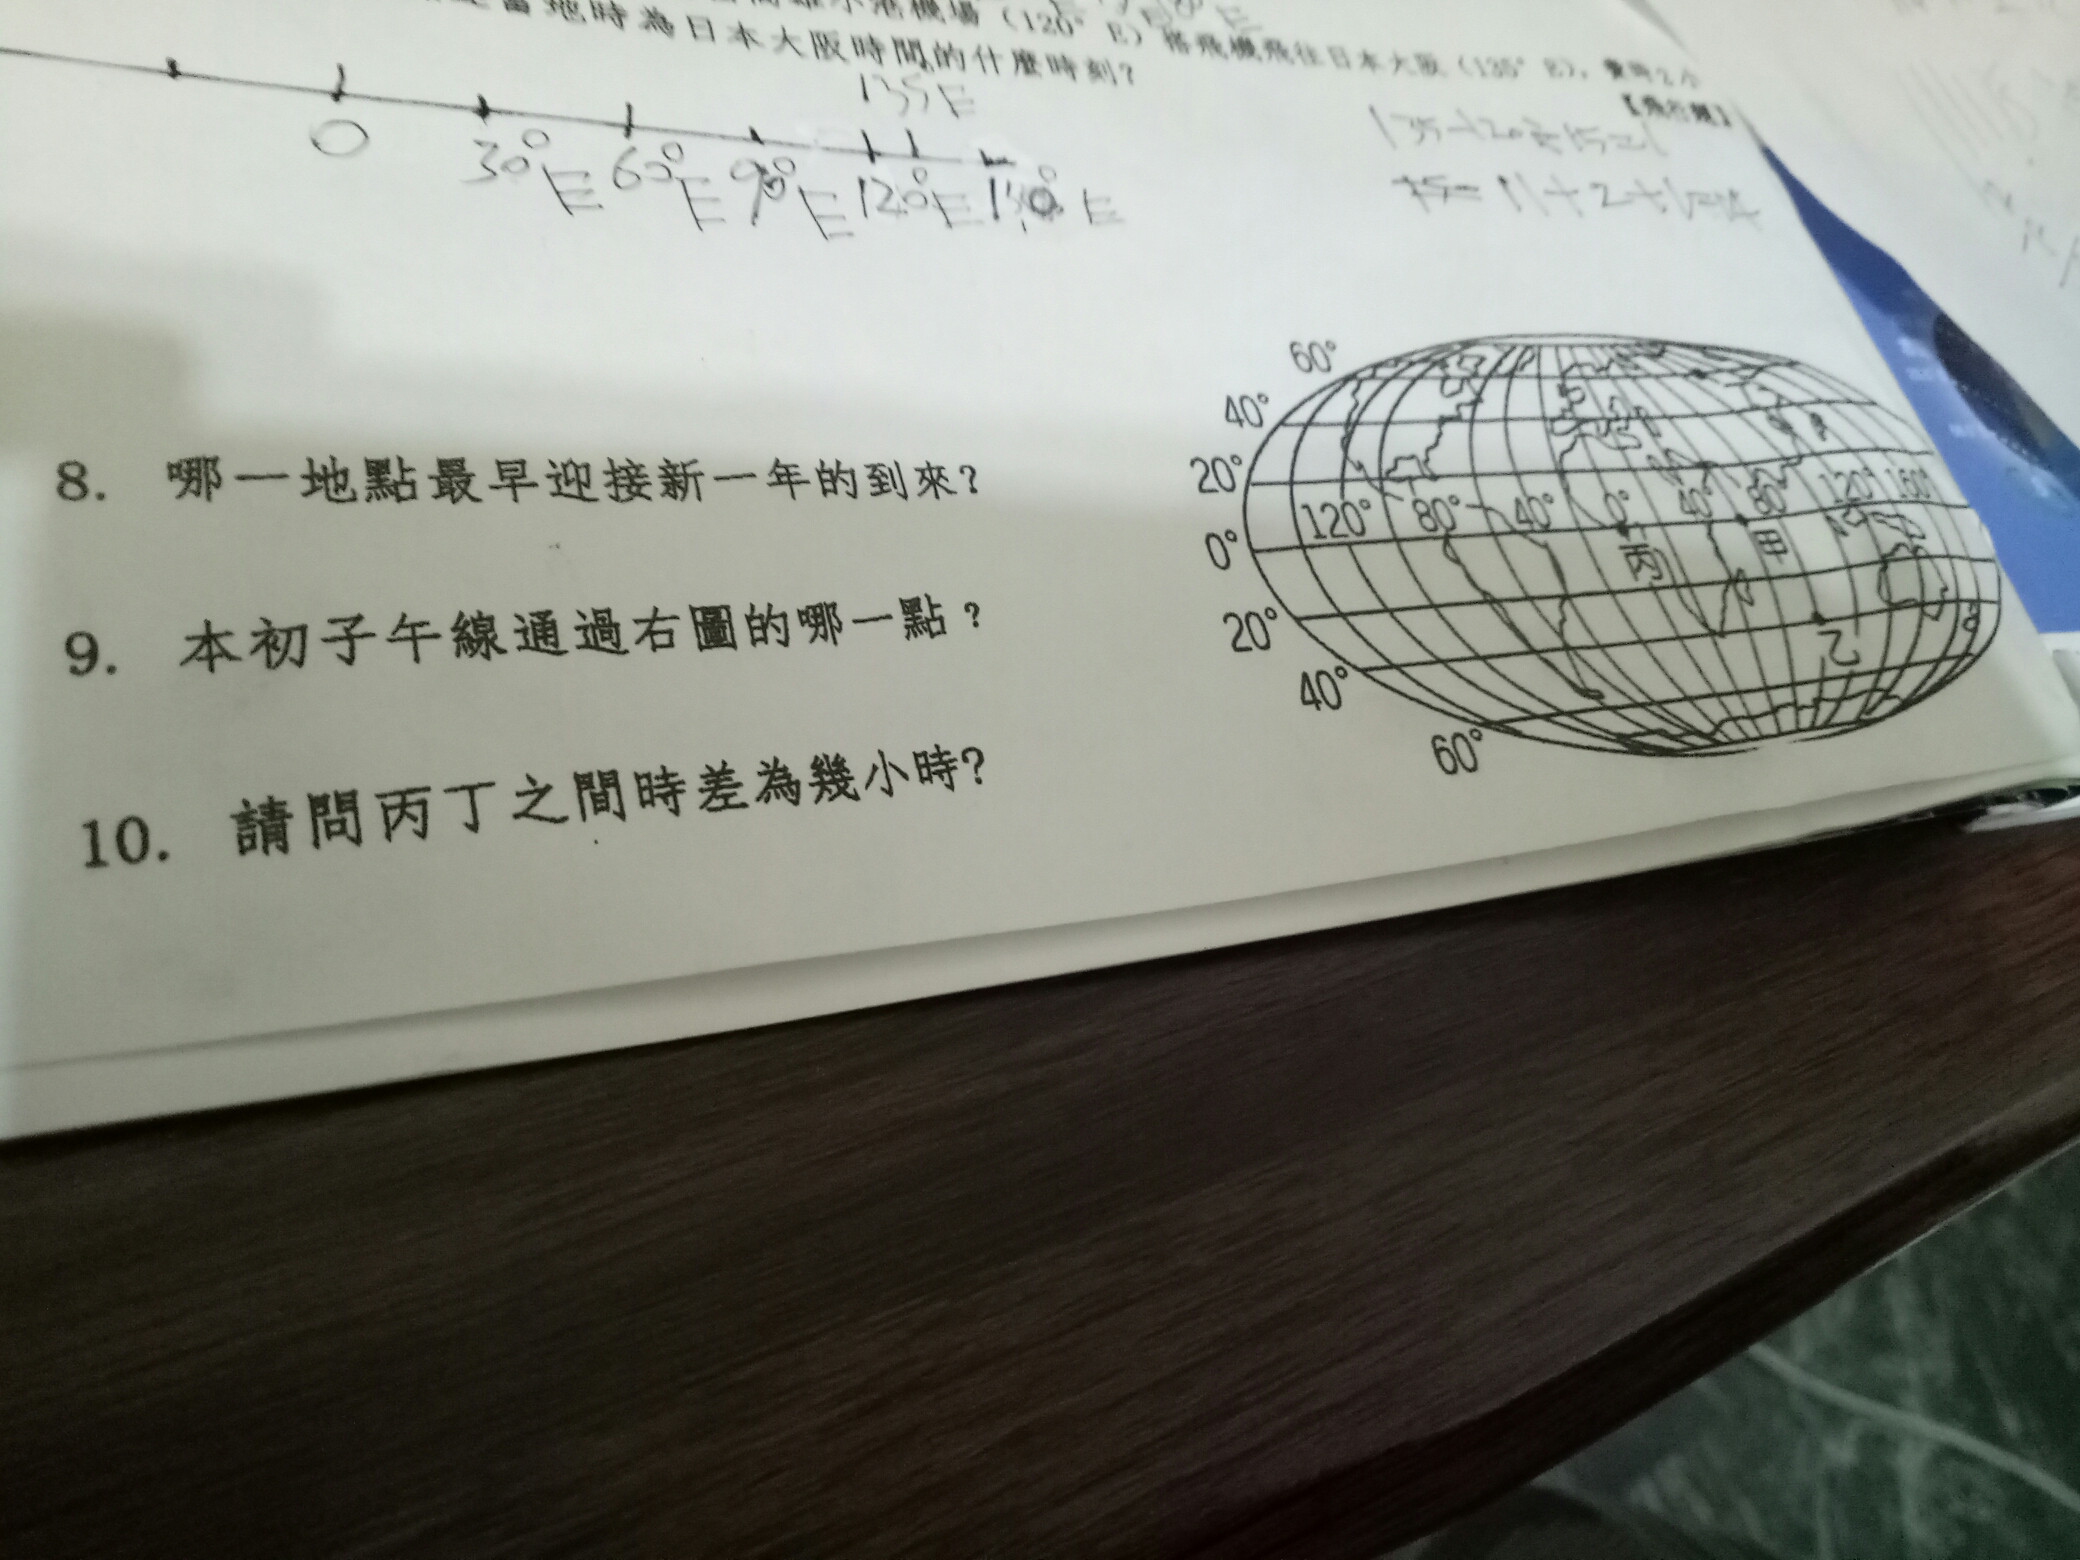 機場（120° E）搭飛機飛往日本大阪（135° E），費時2小
當地時為日本大阪時間的什麼時刻？
135E
0
30°E
60°E
90°E
120°E
E
8. 哪一地點最早迎接新一年的到來？
9. 本初子午線通過右圖的哪一點？
10. 請問丙丁之間時差為幾小時？
60°
40°
20°
0°
20°
40°
60°
120° 80° 40° 0° 40° 80° 120° 160°
丙
甲
乙